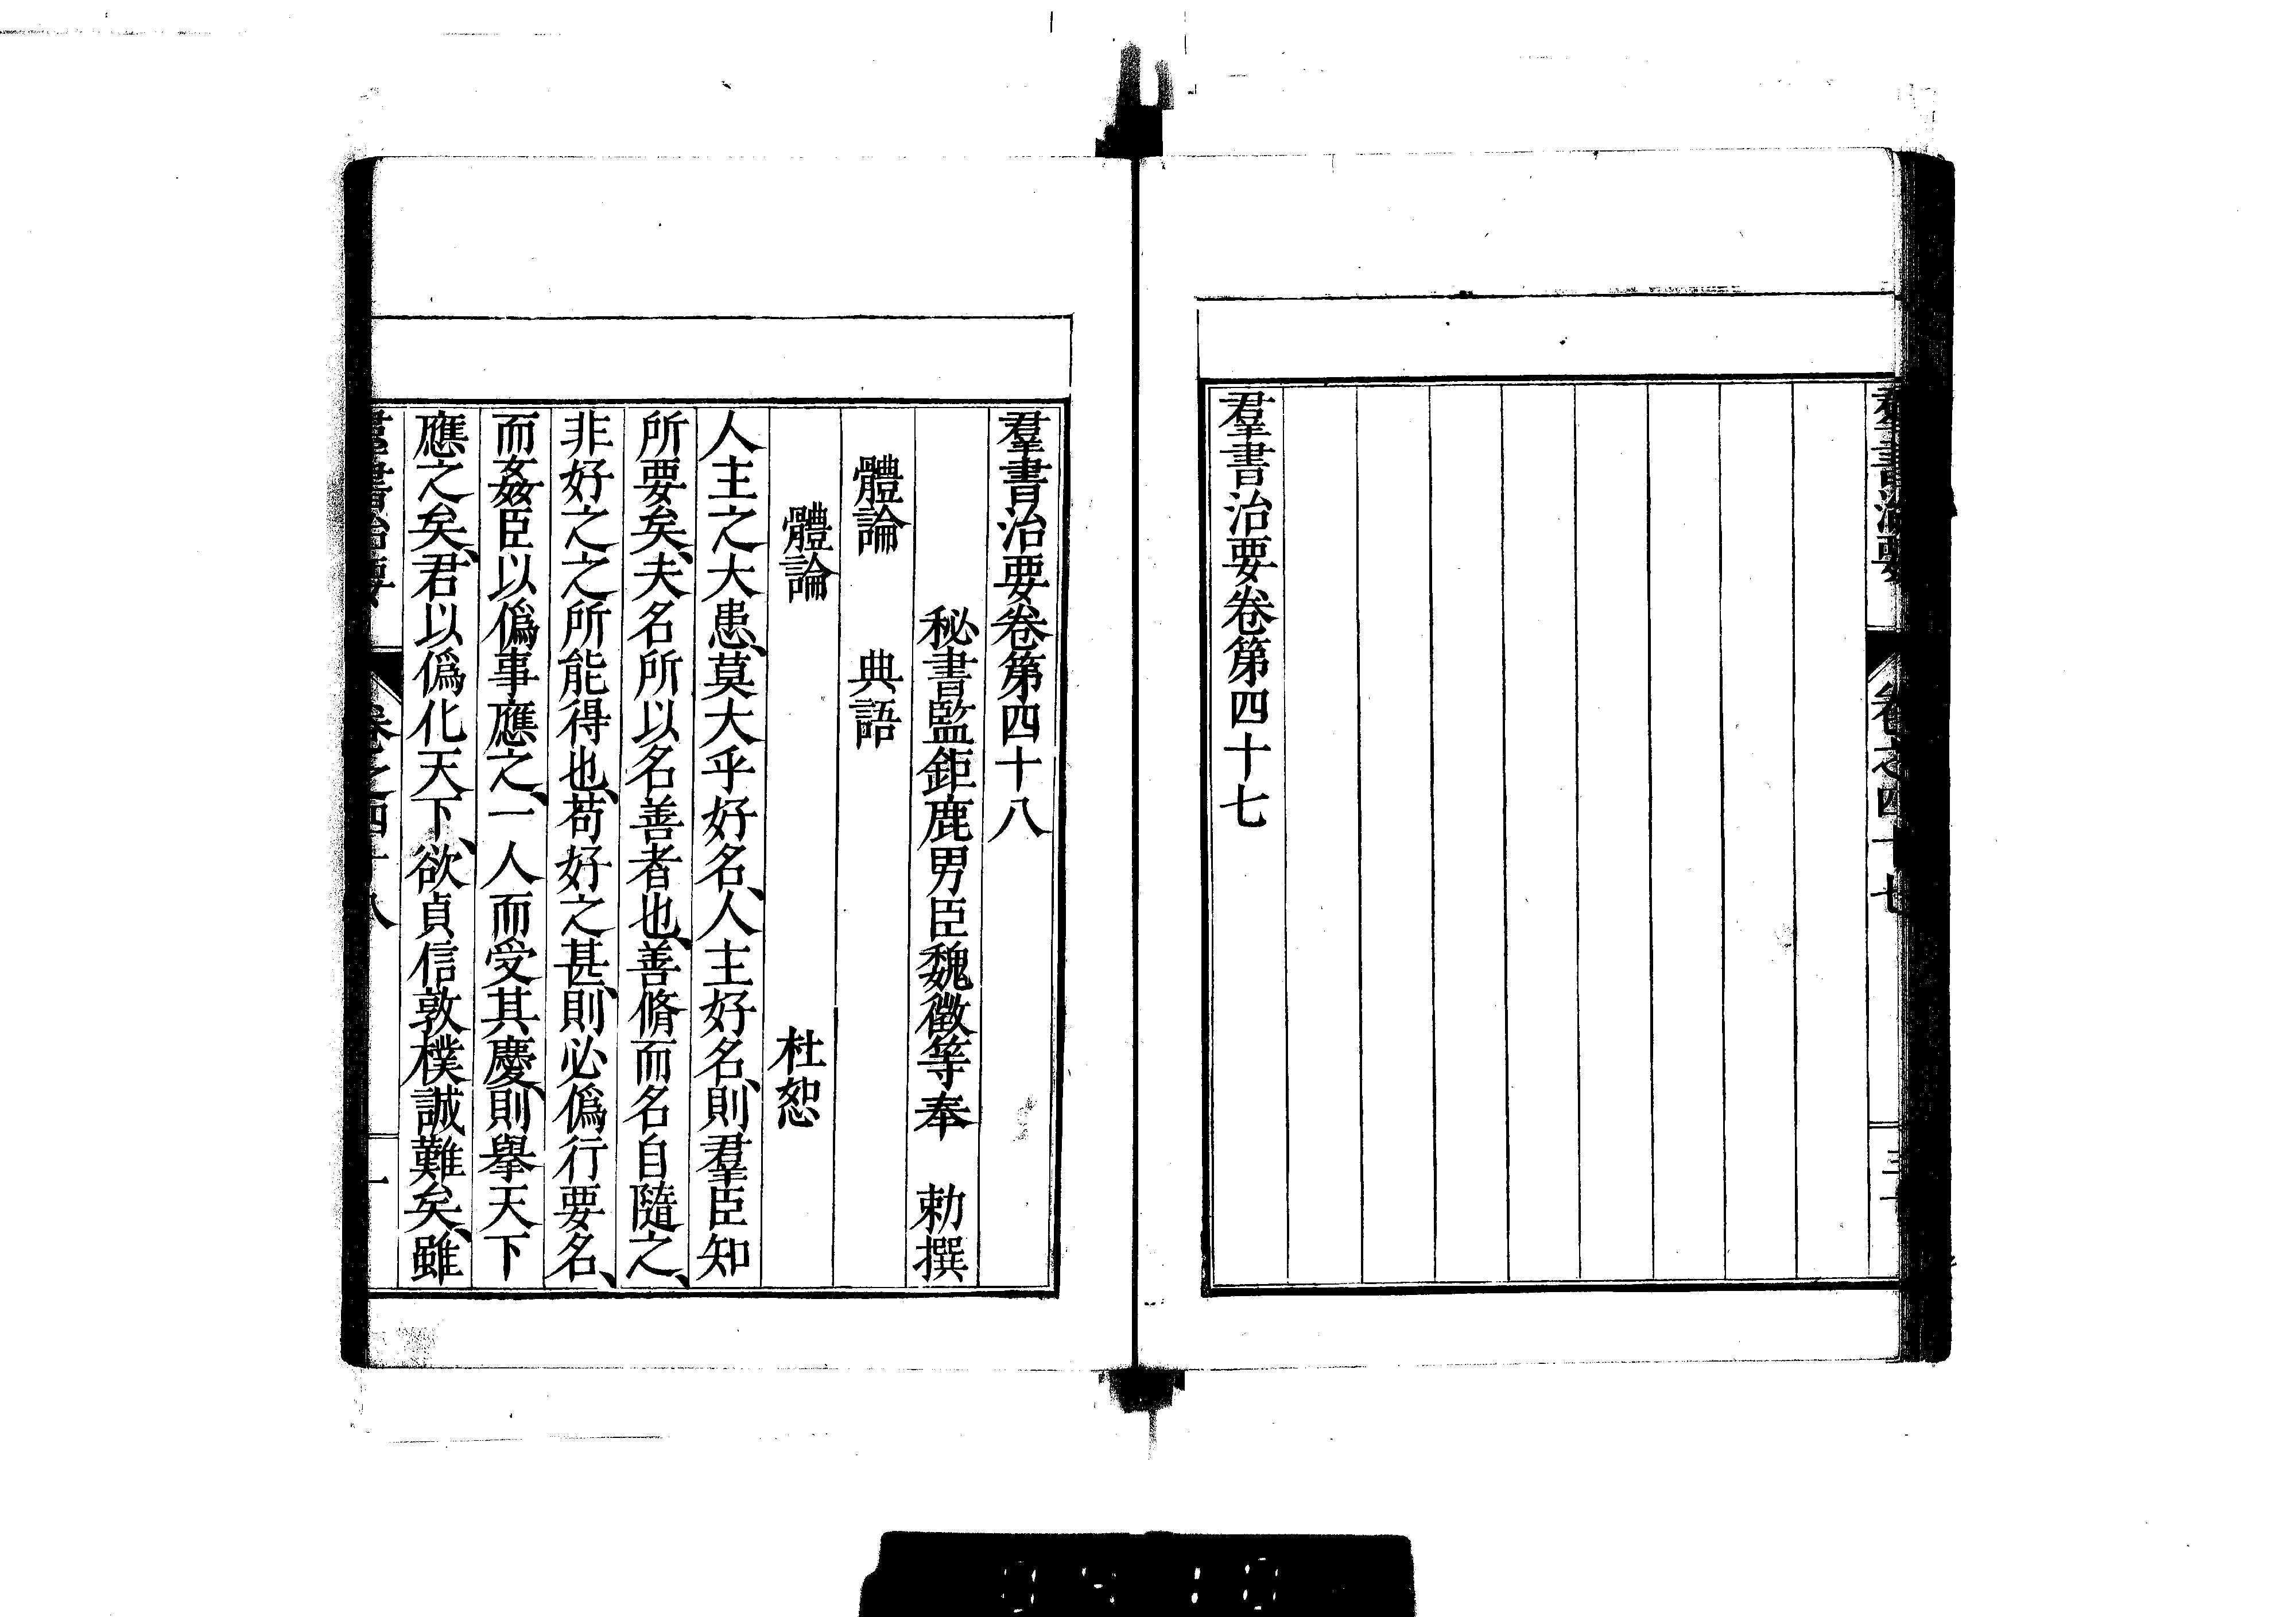 羣書治要
卷之四十七
羣書治要卷第四十七
羣書治要卷第四十八
秘書監鉅鹿男臣魏徵等奉 勅撰
體論 典語
體論 杜恕
人主之大患、莫大乎好名、人主好名、則羣臣知
所要矣、夫名所以名善者也、善脩而名自隨之、
非好之之所能得也、苟好之甚、則必僞行要名、
而姦臣以僞事應之、一人而受其慶、則擧天下
應之矣、君以僞化天下、欲貞信敦樸誠難矣、雖
羣書治要 卷之四十八 一